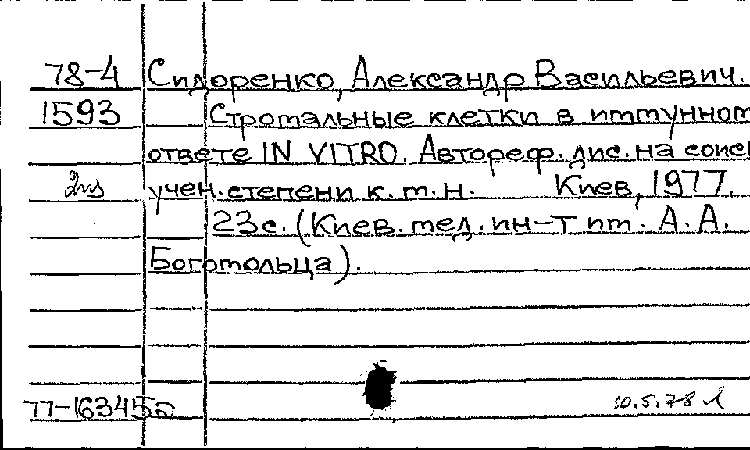 78-4 Сидоренко, Александр Васильевич.
1593 Стромальные клетки в иммунном
ответе IN VITRO. Автореф. дис. на соиск
2из учен. степени к.м.н. Киев, 1977.
23с. (Киев. мед. ин-т им. А.А.
Богомольца).
77-16345 10.5.78